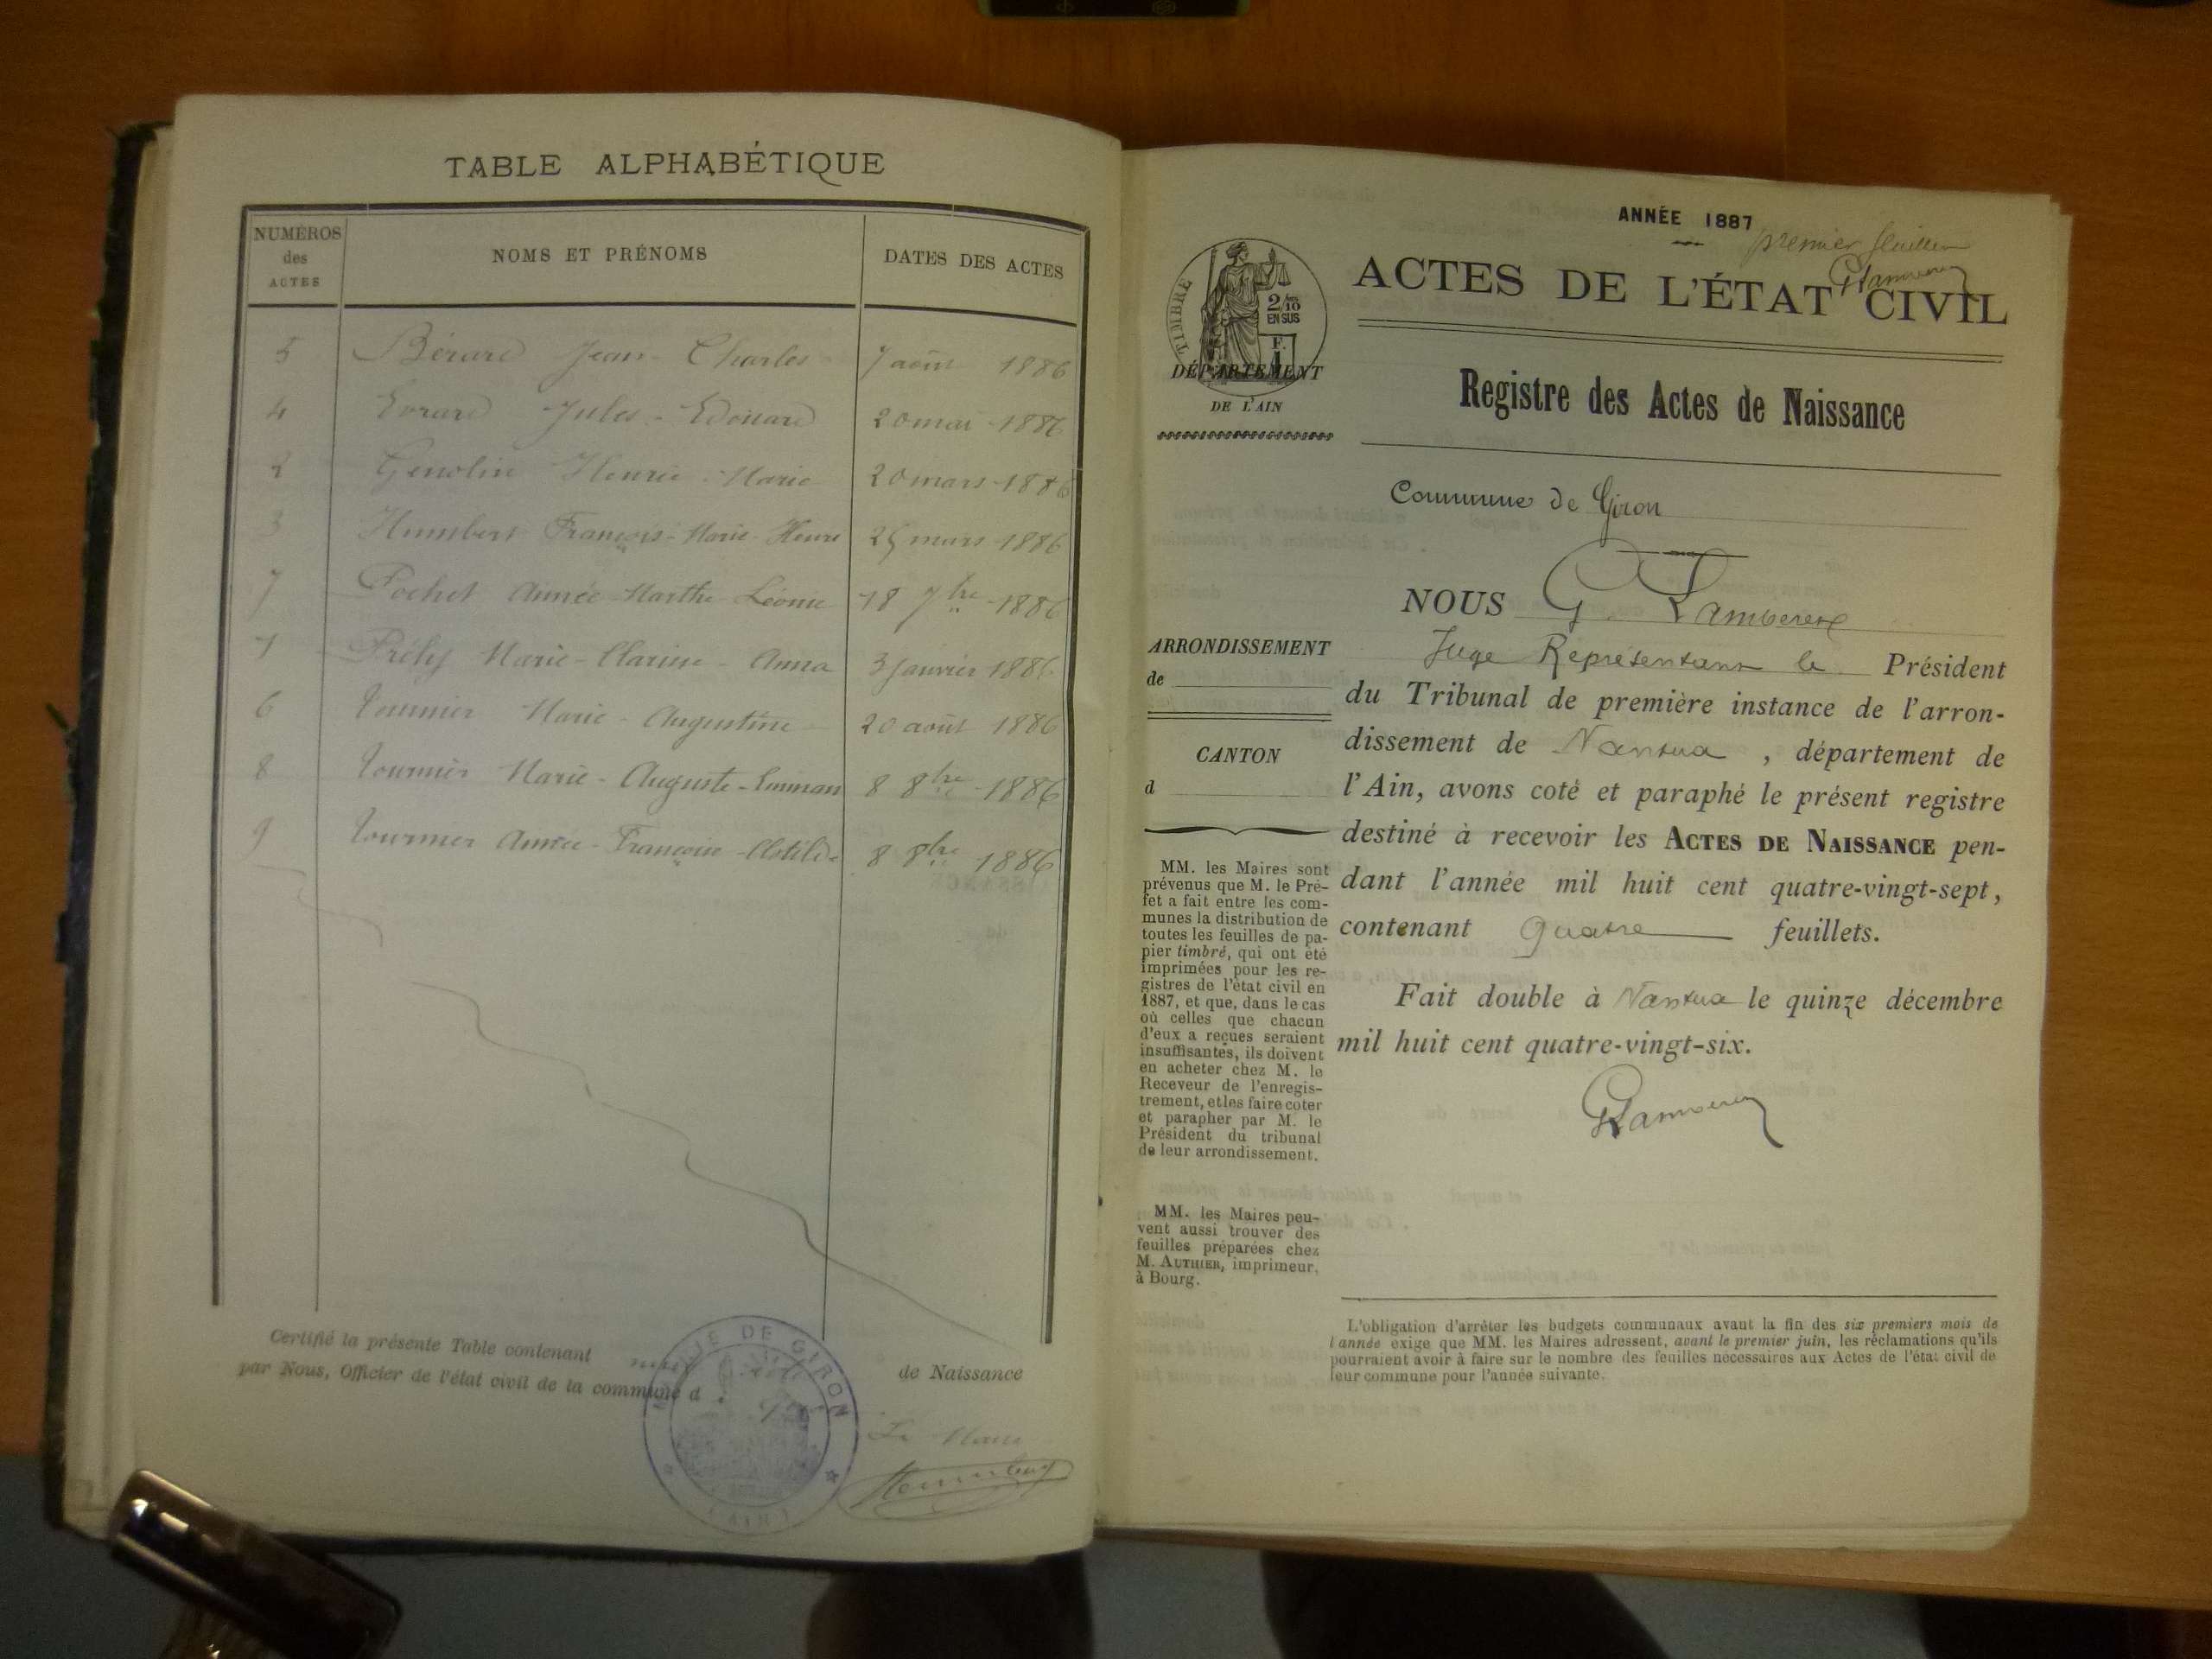 TABLE ALPHABÉTIQUE
NUMÉROS des ACTES
NOMS ET PRÉNOMS
DATES DES ACTES
5 Bérard Jean-Charles 7 août 1886
4 Evrard Jules-Edouard 20 mai 1886
2 Genolin Henri Marie 20 mars 1886
3 Humbert François-Marie-Henri 25 mars 1886
7 Pochet Aimée-Marthe Léonie 18 7bre 1886
1 Prély Marie-Clarisse-Anna 3 janvier 1886
6 Tournier Marie-Augustine 20 août 1886
8 Tournier Marie-Auguste 8 8bre 1886
9 Tournier Aimée-Françoise-Clotilde 8 8bre 1886
Certifié la présente Table contenant neuf actes de Naissance
par Nous, Officier de l'état civil de la commune d
DE GIRON
(AIN)
Le Maire
ANNÉE 1887
premier feuillet
TIMBRE
2/10
EN SUS
F.
1
ACTES DE L'ÉTAT CIVIL
DÉPARTEMENT
DE L'AIN
Registre des Actes de Naissance
Commune de Giron
NOUS G
Juge Représentant le Président
du Tribunal de première instance de l'arron-
dissement de Nantua, département de
l'Ain, avons coté et paraphé le présent registre
destiné à recevoir les ACTES DE NAISSANCE pen-
dant l'année mil huit cent quatre-vingt-sept,
contenant quatre feuillets.
Fait double à Nantua le quinze décembre
mil huit cent quatre-vingt-six.
ARRONDISSEMENT
de
CANTON
d
MM. les Maires sont
prévenus que M. le Pré-
fet a fait entre les com-
munes la distribution de
toutes les feuilles de pa-
pier timbré, qui ont été
imprimées pour les re-
gistres de l'état civil en
1887, et que, dans le cas
où celles que chacun
d'eux a reçues seraient
insuffisantes, ils doivent
en acheter chez M. le
Receveur de l'enregis-
trement, et les faire coter
et parapher par M. le
Président du tribunal
de leur arrondissement.
MM. les Maires peu-
vent aussi trouver des
feuilles préparées chez
M. AUTHIER, imprimeur,
à Bourg.
L'obligation d'arrêter les budgets communaux avant la fin des six premiers mois de
l'année exige que MM. les Maires adressent, avant le premier juin, les réclamations qu'ils
pourraient avoir à faire sur le nombre des feuilles nécessaires aux Actes de l'état civil de
leur commune pour l'année suivante.